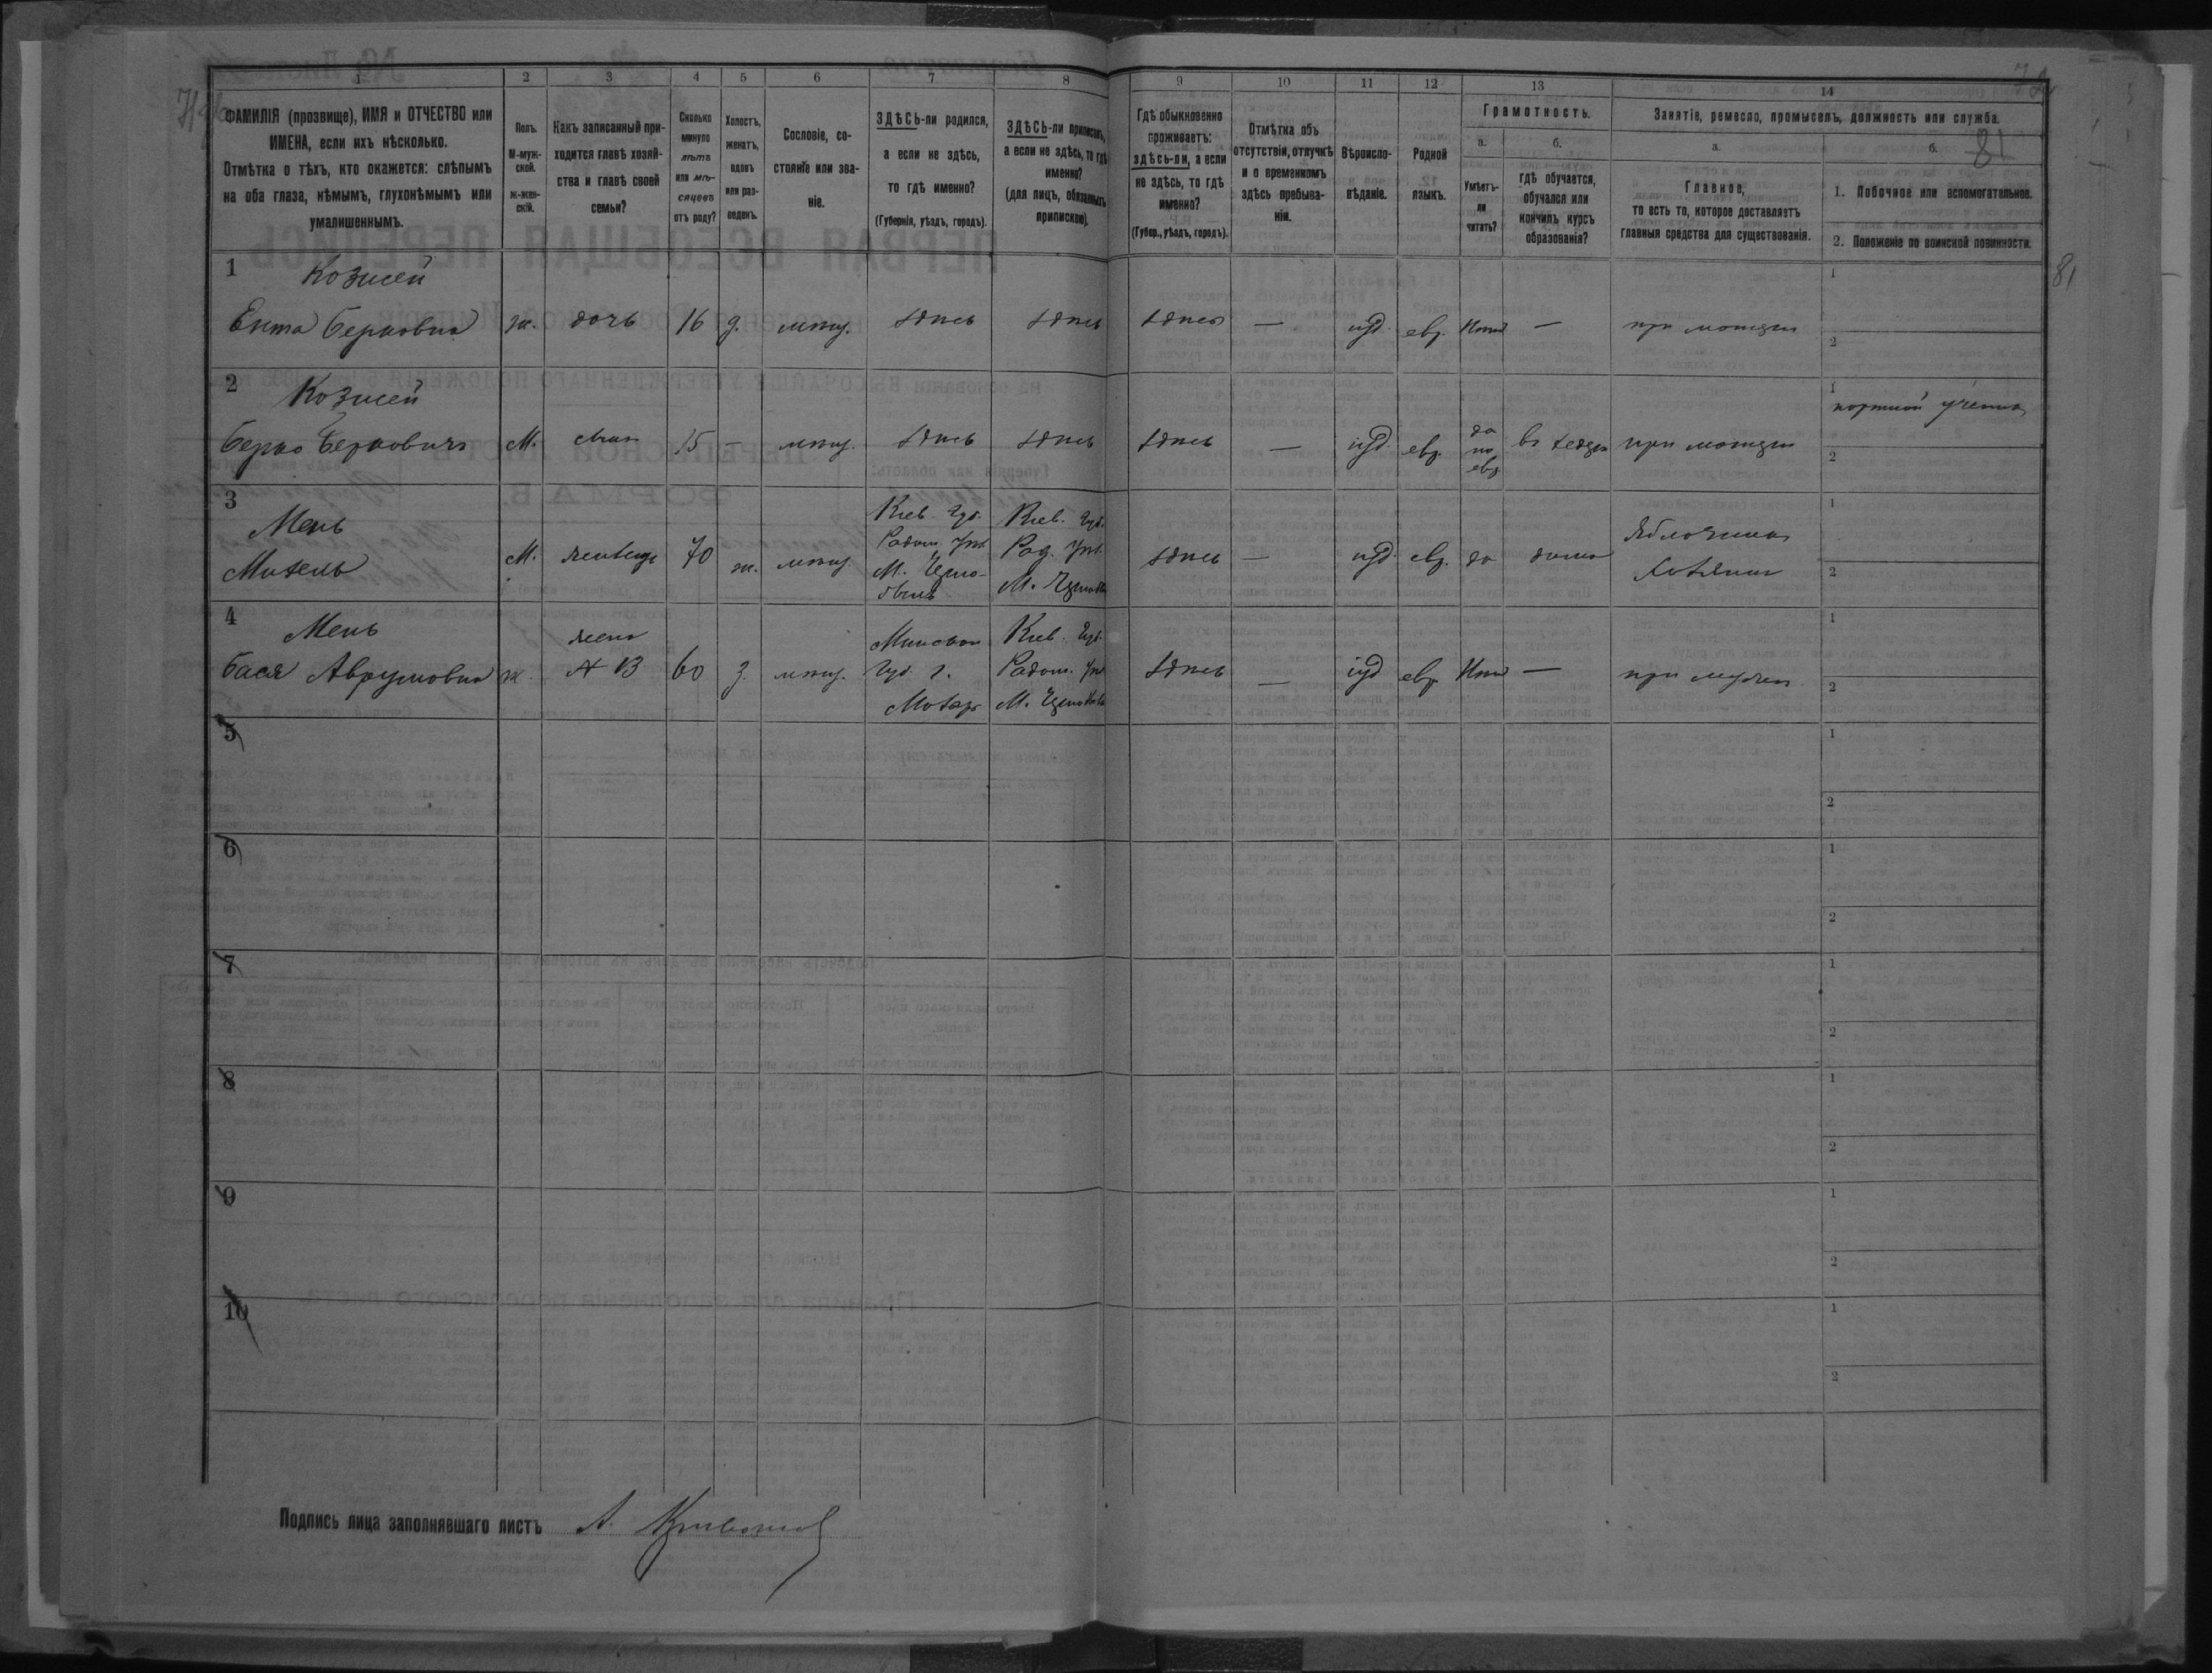 1 2 3 4 5 6 7 8 9 10 11 12 13 14
ФАМИЛІЯ (прозвище), ИМЯ и ОТЧЕСТВО или
ИМЕНА, если ихъ нѣсколько.
Отмѣтка о тѣхъ, кто окажется: слѣпымъ
на оба глаза, нѣмымъ, глухонѣмымъ или
умалишеннымъ.
Полъ.
М-муж-
ской.
ж-жен-
скій.
Какъ записанный при-
ходится главѣ хозяй-
ства и главѣ своей
семьи?
Сколько
минуло
лѣтъ
или мѣ-
сяцевъ
отъ роду?
Холостъ,
женатъ,
вдовъ
или раз-
веденъ.
Сословіе, со-
стояніе или зва-
ніе.
ЗДѢСЬ-ли родился,
а если не здѣсь,
то гдѣ именно?
(Губернія, уѣздъ, городъ).
ЗДѢСЬ-ли приписанъ,
а если не здѣсь, то гдѣ
именно?
(для лицъ, обязанныхъ
припиской)
Гдѣ обыкновенно
проживаетъ:
здѣсь-ли, а если
не здѣсь, то гдѣ
именно?
(Губер., уѣздъ, городъ).
Отмѣтка объ
отсутствіи, отлучкѣ
и о временномъ
здѣсь пребыва-
ніи.
Вѣроиспо-
вѣданіе.
Родной
языкъ.
Грамотность.
а.
Умѣетъ-
ли
читать?
б.
гдѣ обучается,
обучался или
кончилъ курсъ
образованія?
Занятіе, ремесло, промыселъ, должность или служба.
а.
Главное,
то есть то, которое доставляетъ
главныя средства для существованія.
б.
81
1. Побочное или вспомогательное.
2. Положеніе по воинской повинности.
81
1 Козисей
Ента Берковна ж. дочь 16 д. мѣщ. здѣсь здѣсь здѣсь — іуд. евр. нѣтъ — при матери
1
2
2 Козисей
Берко Берковичъ М. сынъ 15 – мѣщ. здѣсь здѣсь здѣсь — іуд. евр. да по евр. въ хедерѣ при матери
1 портной
2
3 Мень
М. 70 ж. мѣщ
Кіев. Губ.
Радом. Уѣз
М. Черно-
быль
Кіев. Губ.
Рад. Уѣз.
здѣсь — іуд. евр. да дома
1
2
4 Мень
Бася Аврумовна ж. жена
№ 3 60 з. мѣщ.
Минской
Губ. г.
Мозырь
Кіев. Губ.
Радом. Уѣз
здѣсь — іуд евр. нѣтъ — при мужѣ
1
2
5
1
2
6
1
2
7
1
2
8
1
2
9
1
2
10
1
2
Подпись лица заполнявшаго листъ